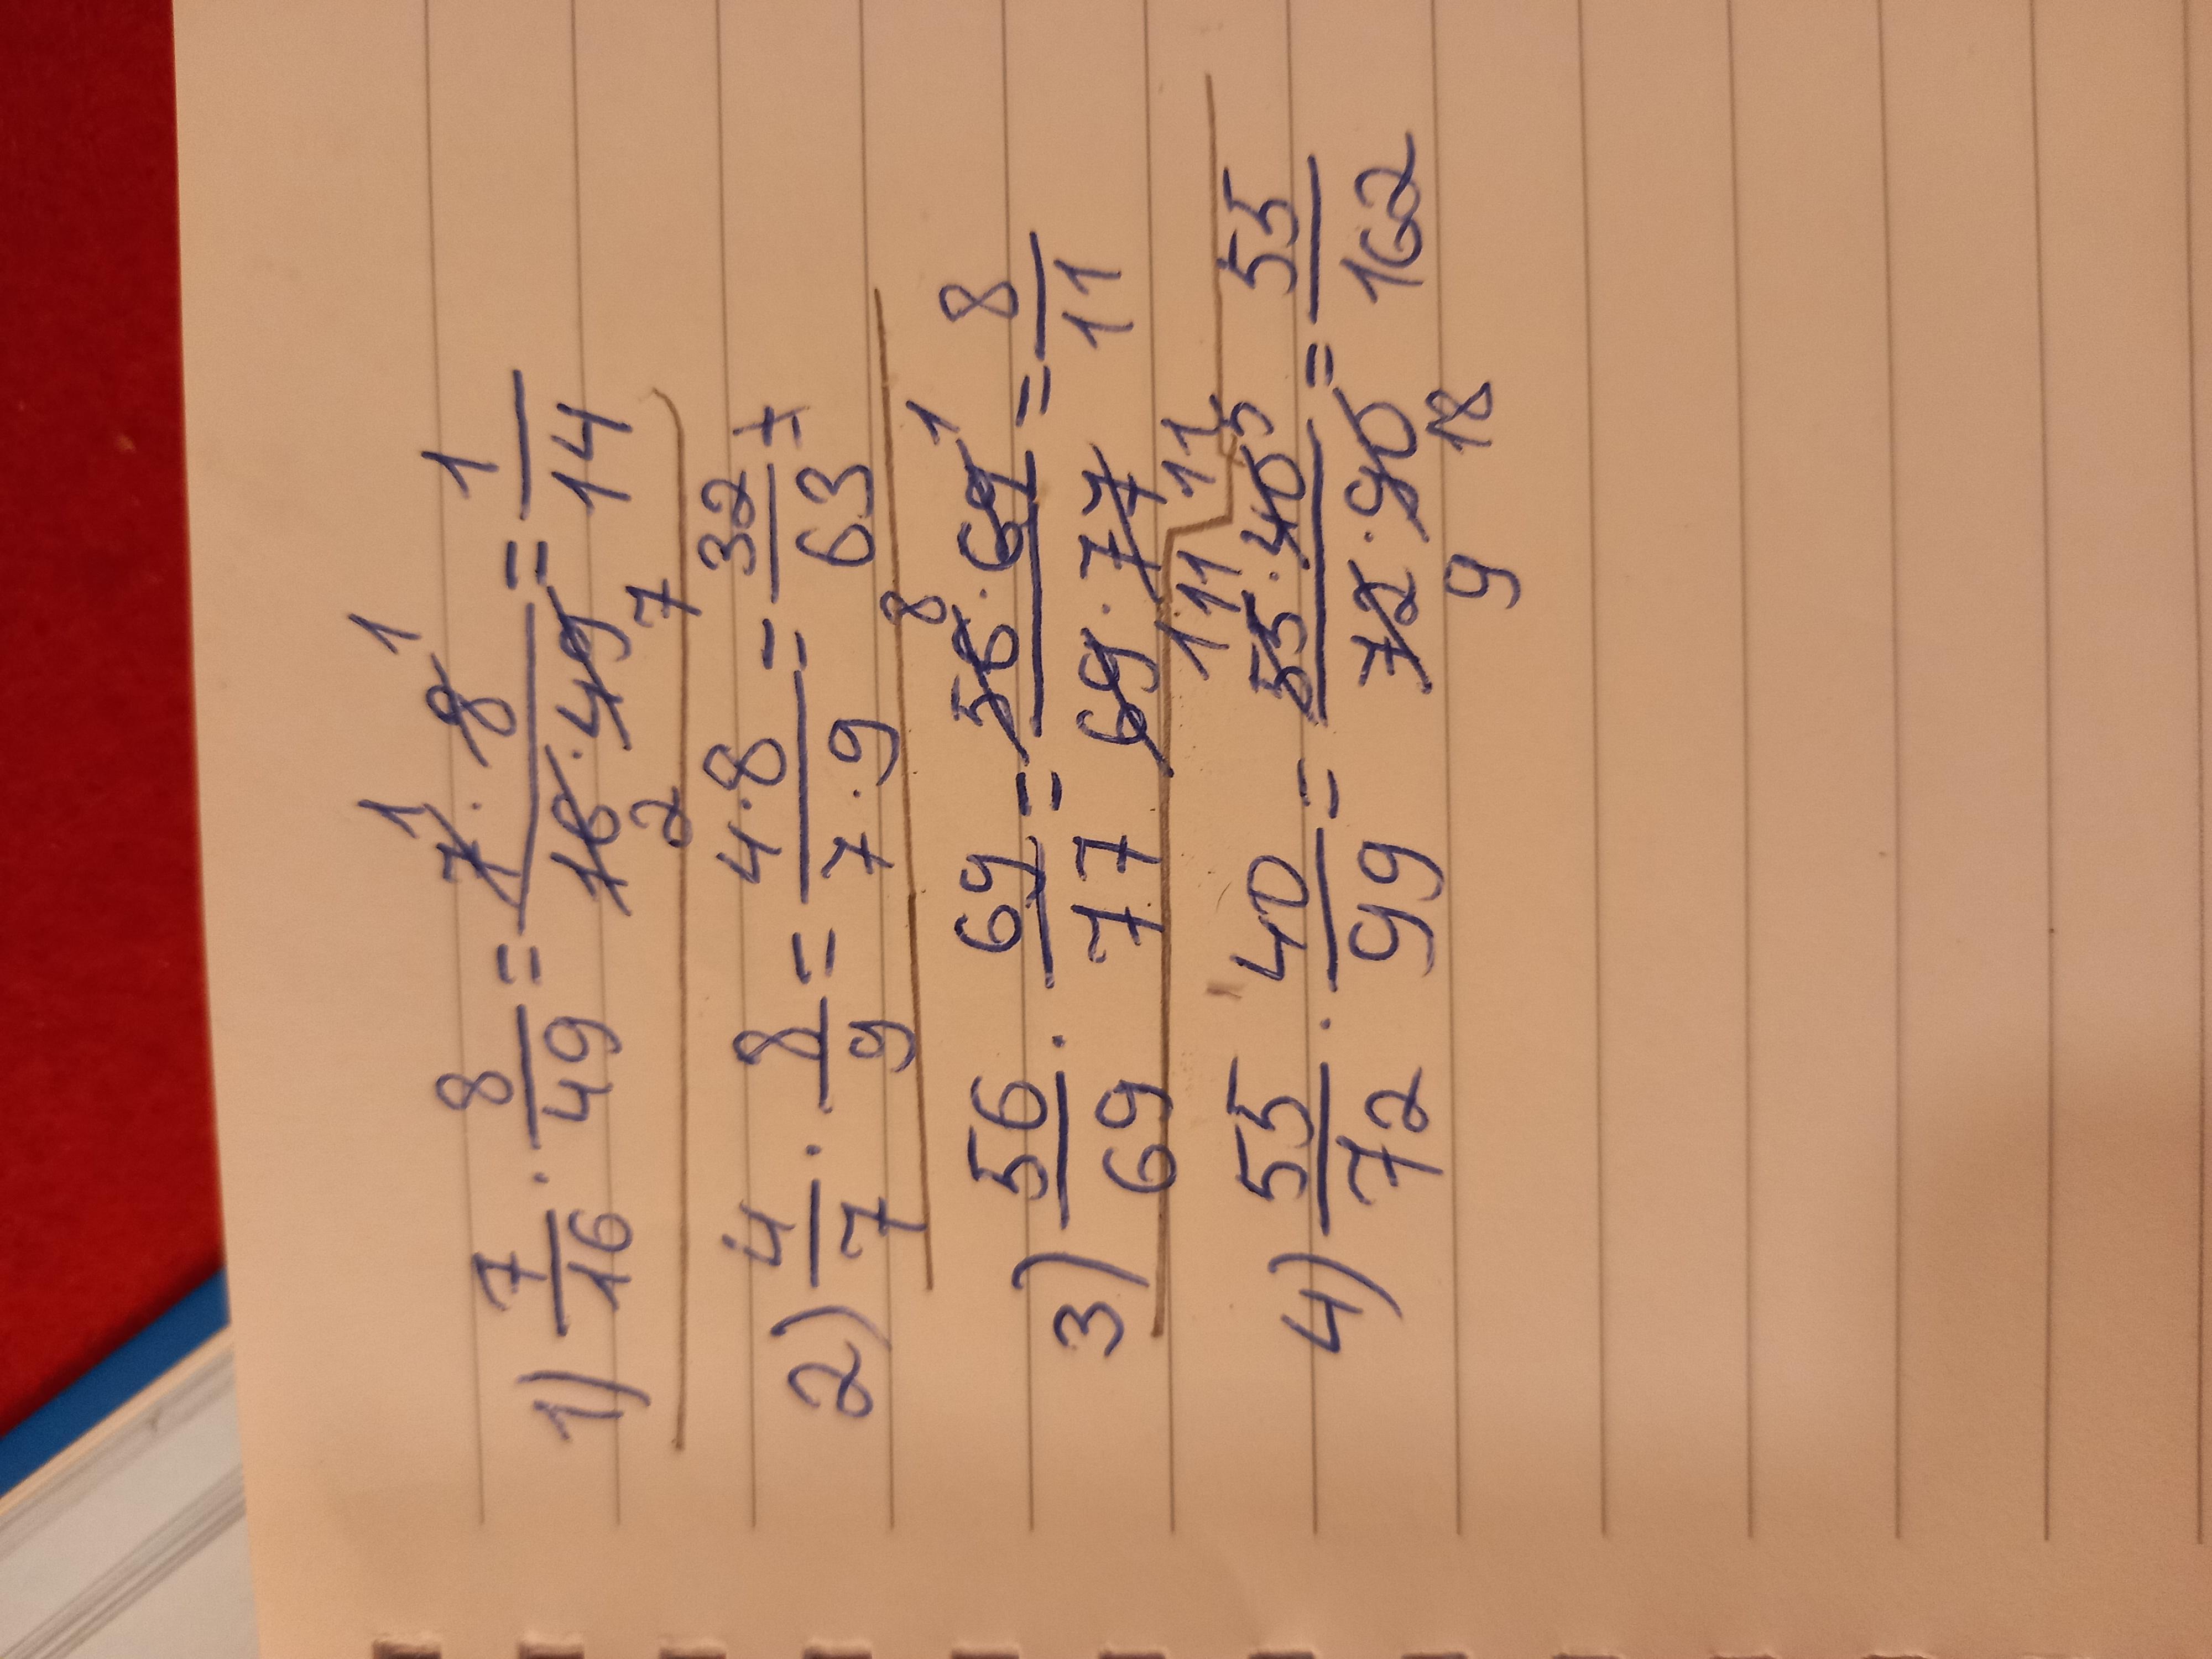 1) 7/16 · 8/49 = 7 · 8 / 16 · 49 = 1/14
1 1
2 7
2) 4/7 · 8/9 = 4 · 8 / 7 · 9 = 32/63
3) 56/69 · 69/77 = 56 · 69 / 69 · 77 = 8/11
8 1
1 11
4) 55/72 · 40/99 = 55 · 40 / 72 · 90 = 55/162
11 5
9 18